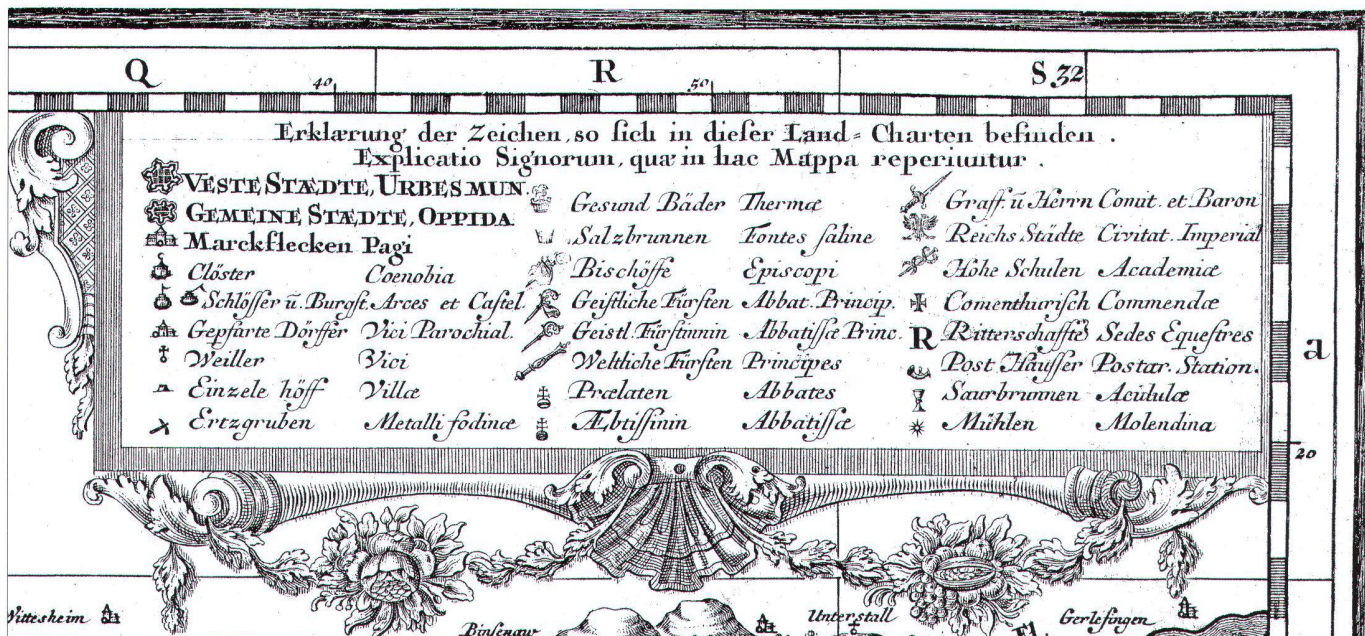 Q R S 32
40 50
Erklærung der Zeichen, so sich in dieser Land-Charten befinden.
Explicatio Signorum, quæ in hac Mappa reperiuntur.
VESTE STÆDTE, URBES MUN.
GEMEINE STÆDTE, OPPIDA
Marckflecken Pagi
Clöster Coenobia
Schlösser ū. Burgst. Arces et Castel.
Gepfarte Dörffer Vici Parochial.
Weiller Vici
Einzele höff Villæ
Ertzgruben Metalli fodinæ
Gesund Bäder Thermæ
Salzbrunnen Fontes saline
Bischöffe Episcopi
Geistliche Fürsten Abbat. Princip.
Geistl. Fürstinnin Abbatissæ Princ.
Weltliche Fürsten Principes
Prælaten Abbates
Æbtissinin Abbatissæ
Graff. ū Herrn Comit. et Baron
Reichs Städte Civitat. Imperial
Hohe Schulen Academiæ
Comenthurisch Commendæ
R Ritterschafftẽs Sedes Equestres
Post Häusser Postar. Station.
Saurbrunnen Acidulæ
Mühlen Molendina
a
20
Wittesheim
Binsenaw
Unterstall
Gerlefingen